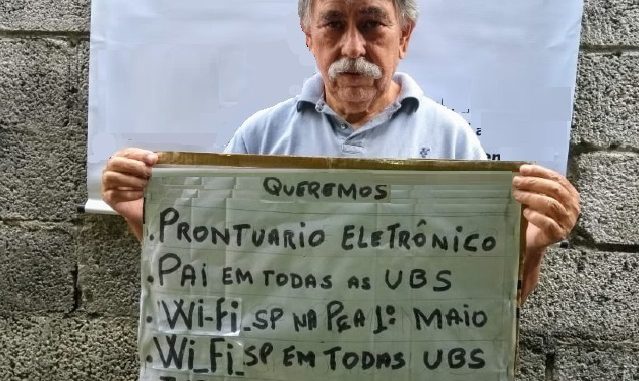 QUEREMOS
. PRONTUARIO ELETRÔNICO
. PAI EM TODAS AS UBS
. Wi-Fi_SP NA PÇA 1º MAIO
. Wi_Fi_SP EM TODAS UBS